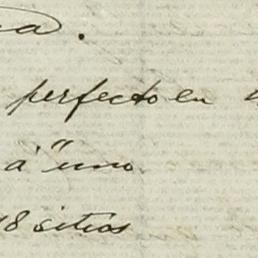 perfecto en
á "uno
18 sitios